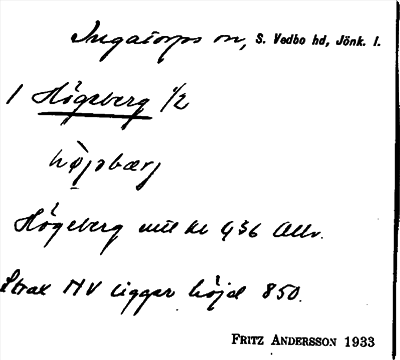 Ingatorps sn, S. Vedbo hd, Jönk. l.
1 Högeberg 1/2
Högeberg mtl kr 436 Allm.
Strax NV ligger höjd 850.
FRITZ ANDERSSON 1933